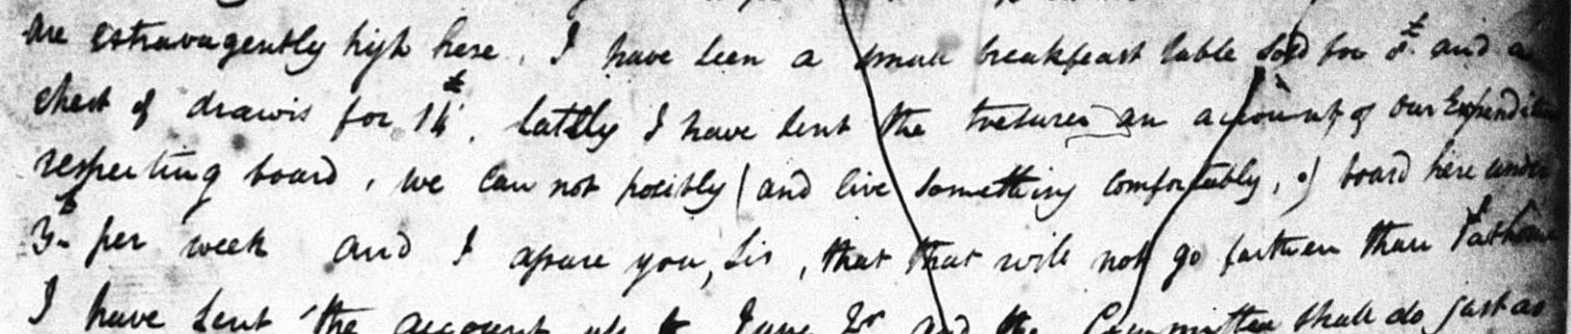 are extravagently high here. I have seen a small breakfeast table sold for 8£. and a
chest of drawis for 14£. latlly I have sent the tresurer an account of our Expenditure
respecting board, we can not possibly (and live something comfortably,) board here under
3£ per week and I assure you, Sir, that that will not go farther than
I have sent the account up to June and the Committee shall do just as